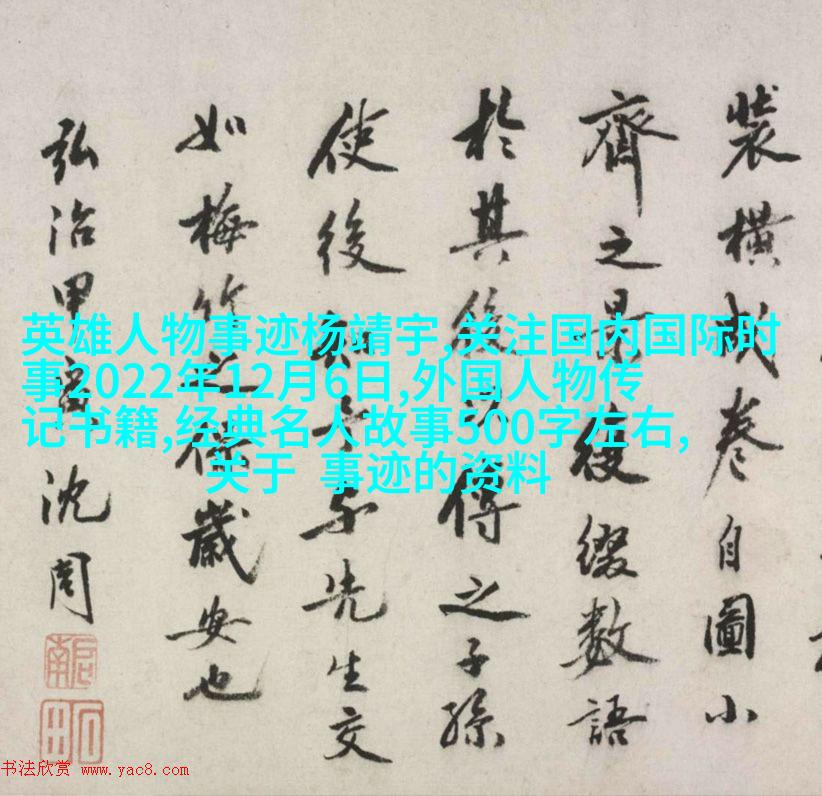 英雄人物事迹杨靖宇,关注国内国际时
事2022年12月6日,外国人物传
记书籍,经典名人故事500字左右,
关于 事迹的资料
裝橫成卷自圖小
齊之景後綴數語
於其後 之子孫
使後知吾与先生交
如梅竹之保歲安也
弘治甲寅沈周
啟南
书法欣赏 www.yac8.com